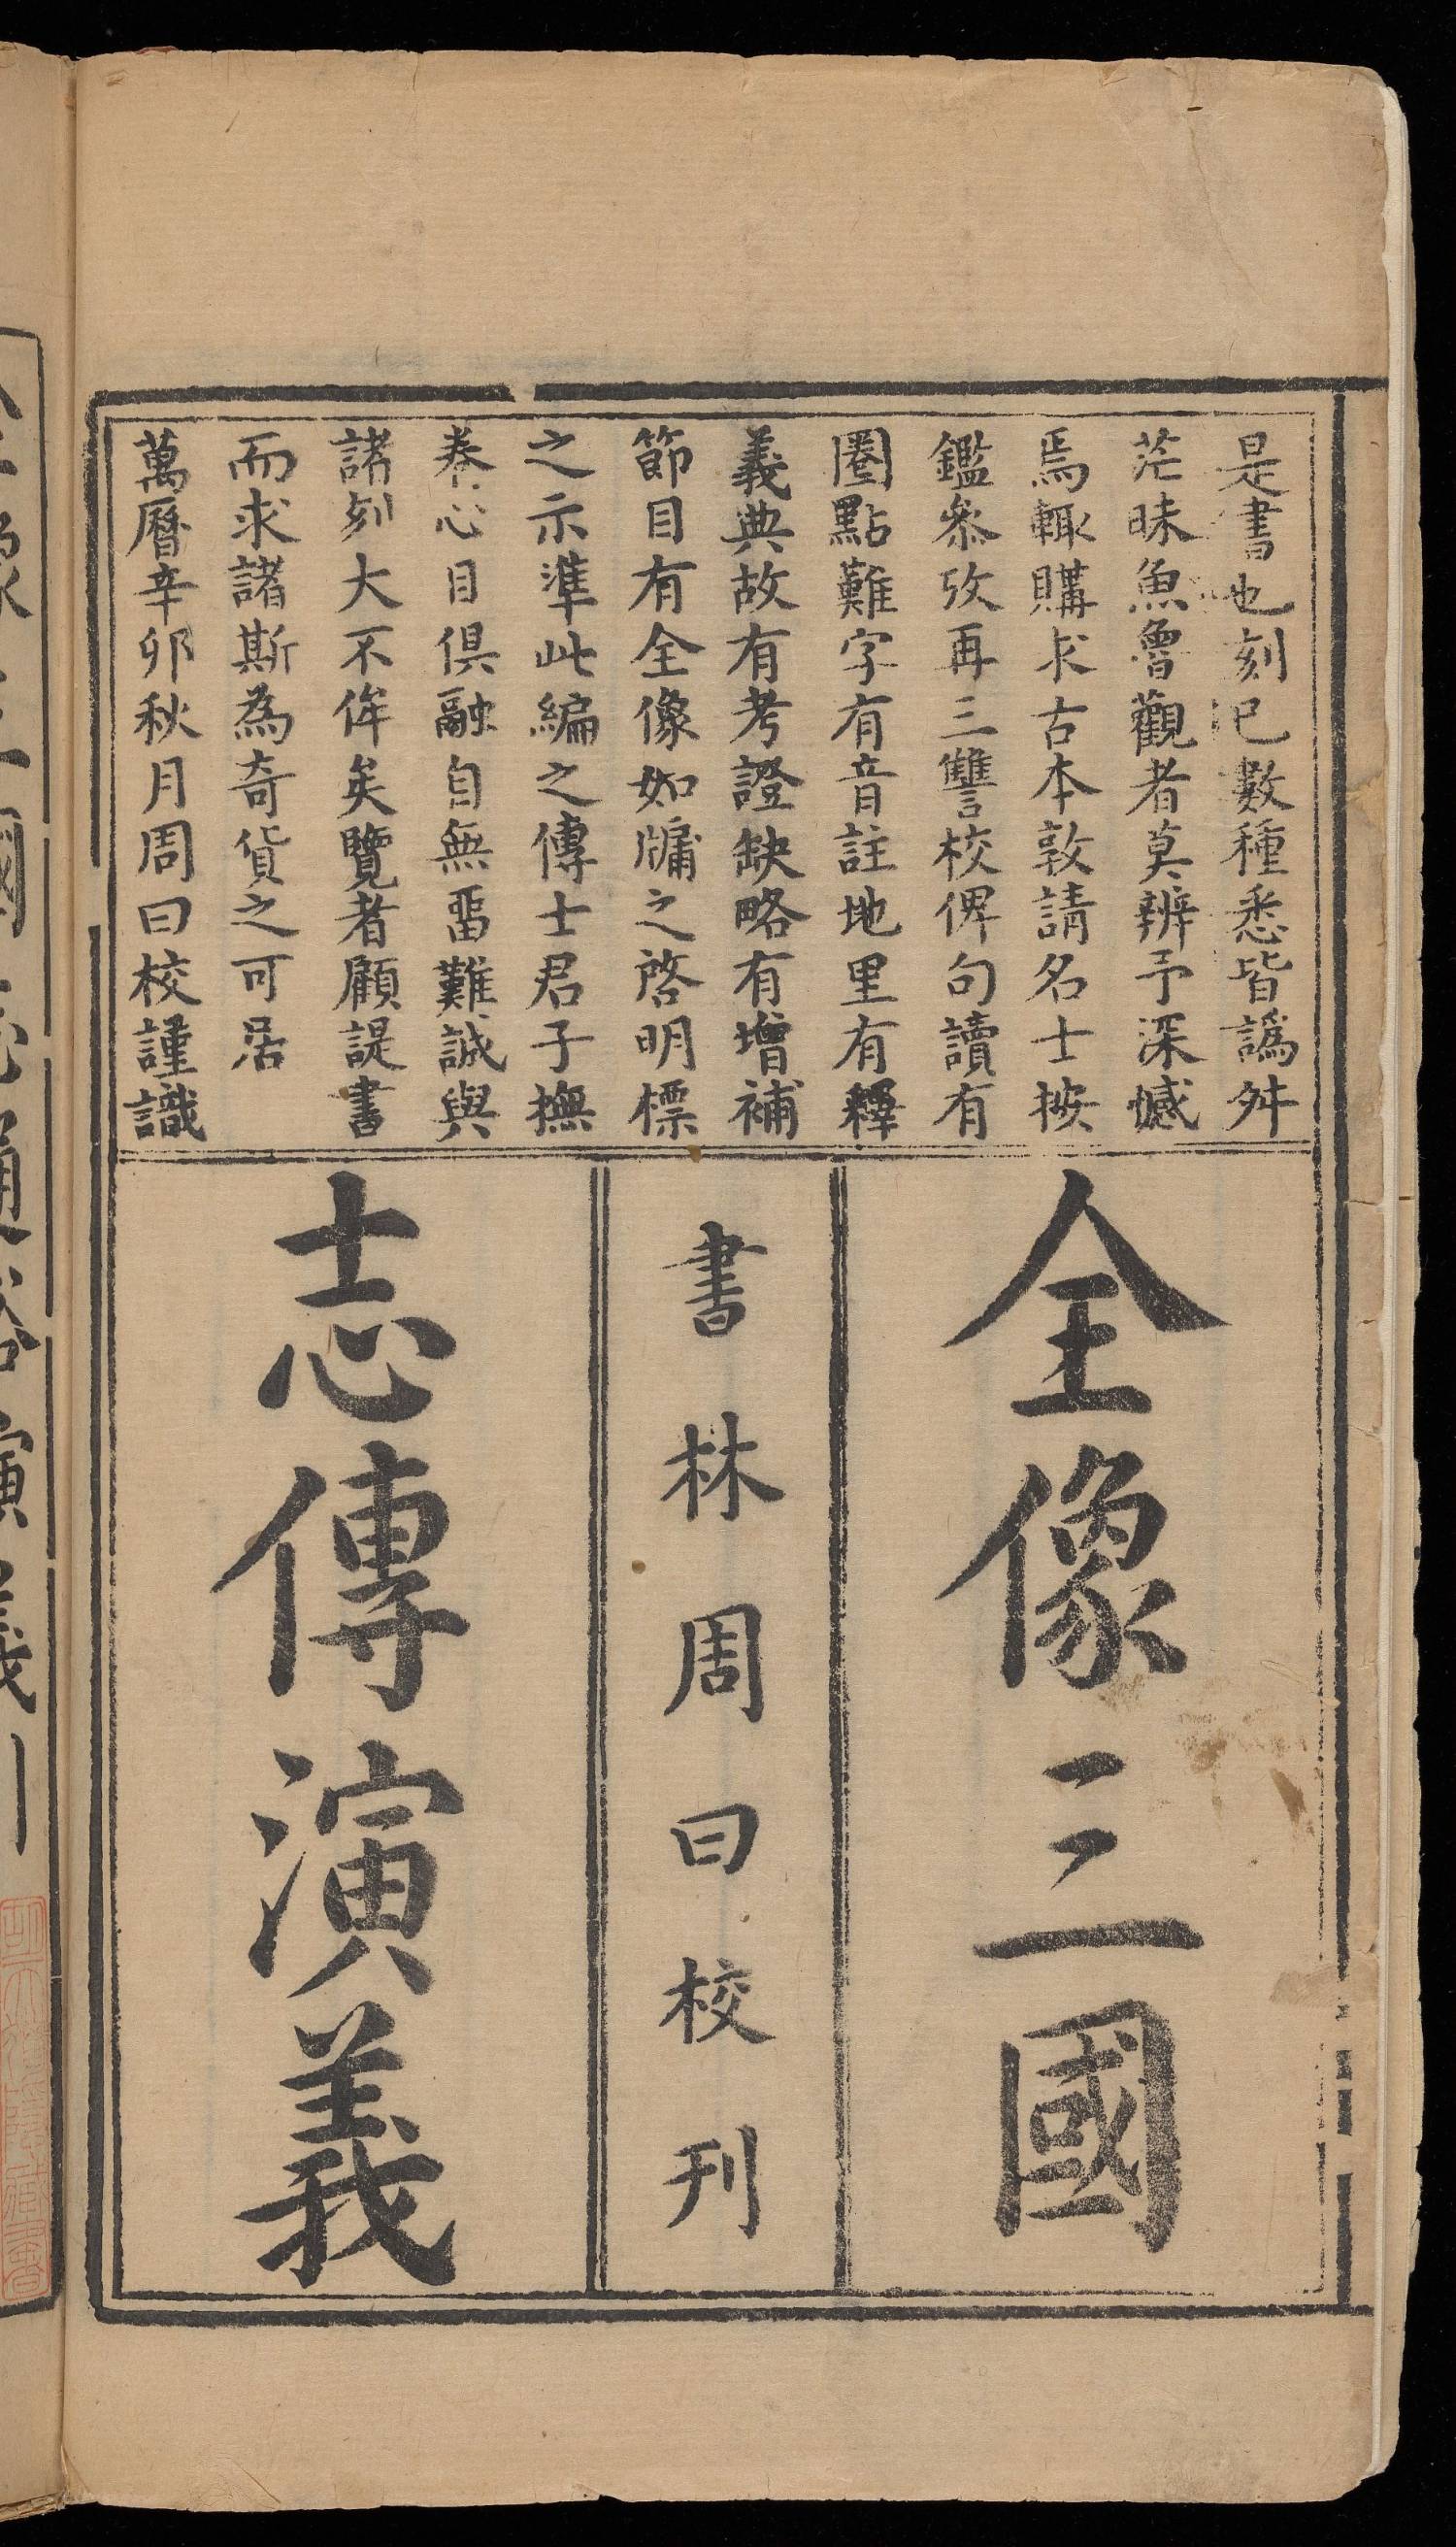 是書也刻已數種悉皆譌舛
茫昧魚魯觀者莫辨予深憾
焉輒購求古本敦請名士按
鑑叅攷再三讐校俾句讀有
圈點難字有音註地里有釋
義典故有考證缺略有增補
節目有全像如牖之啓明標
之示準此編之傳士君子撫
卷心目俱融自無畱難誠與
諸刻大不侔矣覽者顧諟書
而求諸斯為奇貨之可居
萬曆辛卯秋月周曰校謹識
全像三國
書林周曰校刊
志傳演義